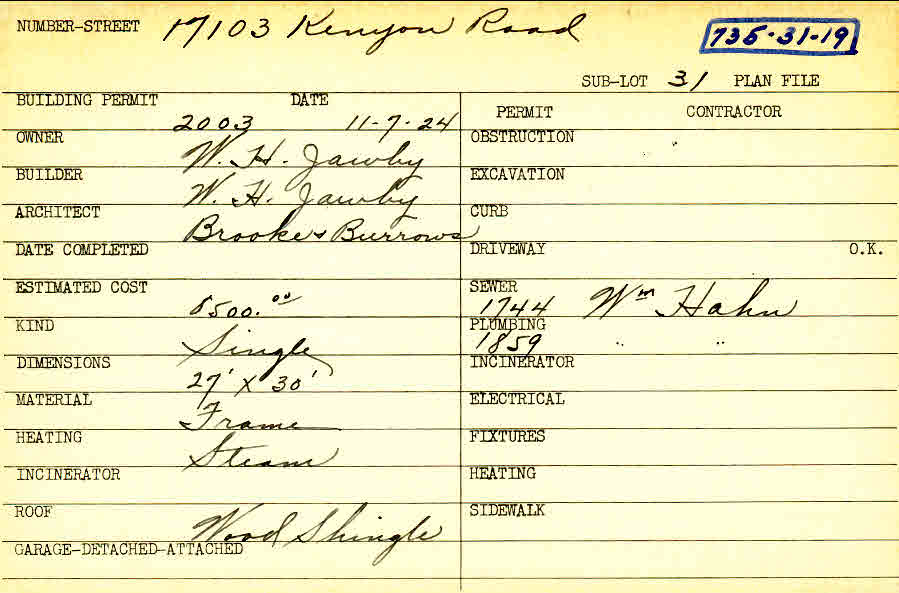 NUMBER-STREET 17103 Kenyon Road
735-31-19
SUB-LOT 31 PLAN FILE
BUILDING PERMIT DATE
2003 11-7-24
OWNER
W. H. Jawby
BUILDER
W. H. Jawby
ARCHITECT
Brooke & Burrows
DATE COMPLETED
ESTIMATED COST
8500.00
KIND
Single
DIMENSIONS
27' X 30'
MATERIAL
Frame
HEATING
Steam
INCINERATOR
ROOF
Wood Shingle
GARAGE-DETACHED-ATTACHED
PERMIT CONTRACTOR
OBSTRUCTION
EXCAVATION
CURB
DRIVEWAY O.K.
SEWER
1744 Wm Hahn
PLUMBING
1859 " "
INCINERATOR
ELECTRICAL
FIXTURES
HEATING
SIDEWALK